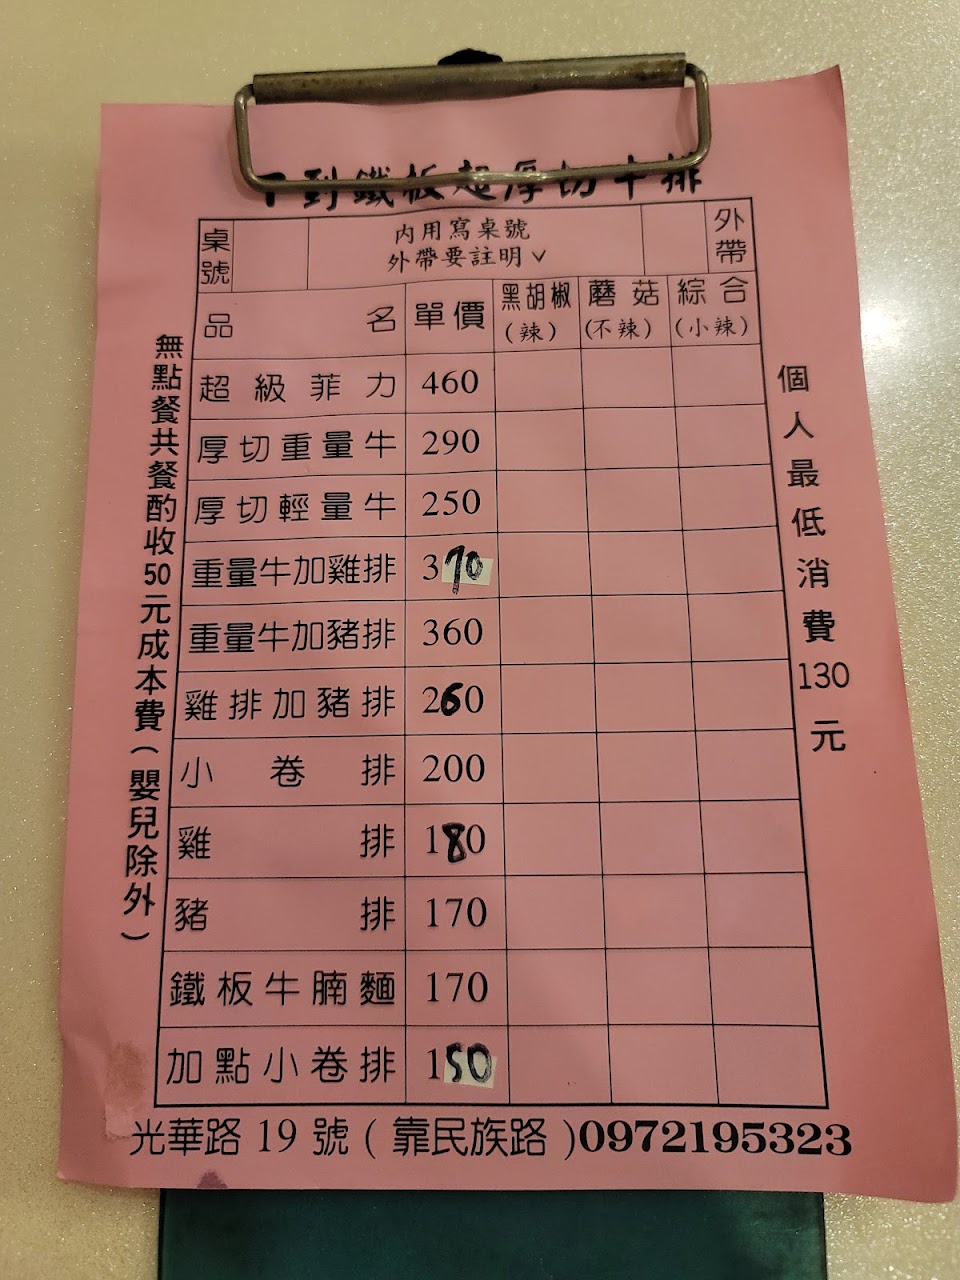 到鐵板超厚切牛排
桌號
內用寫桌號
外帶要註明∨
外帶
品名 單價 黑胡椒(辣) 蘑菇(不辣) 綜合(小辣)
超級菲力 460
厚切重量牛 290
厚切輕量牛 250
重量牛加雞排 370
重量牛加豬排 360
雞排加豬排 260
小卷排 200
雞排 180
豬排 170
鐵板牛腩麵 170
加點小卷排 150
無點餐共餐酌收50元成本費(嬰兒除外)
個人最低消費130元
光華路19號(靠民族路)0972195323